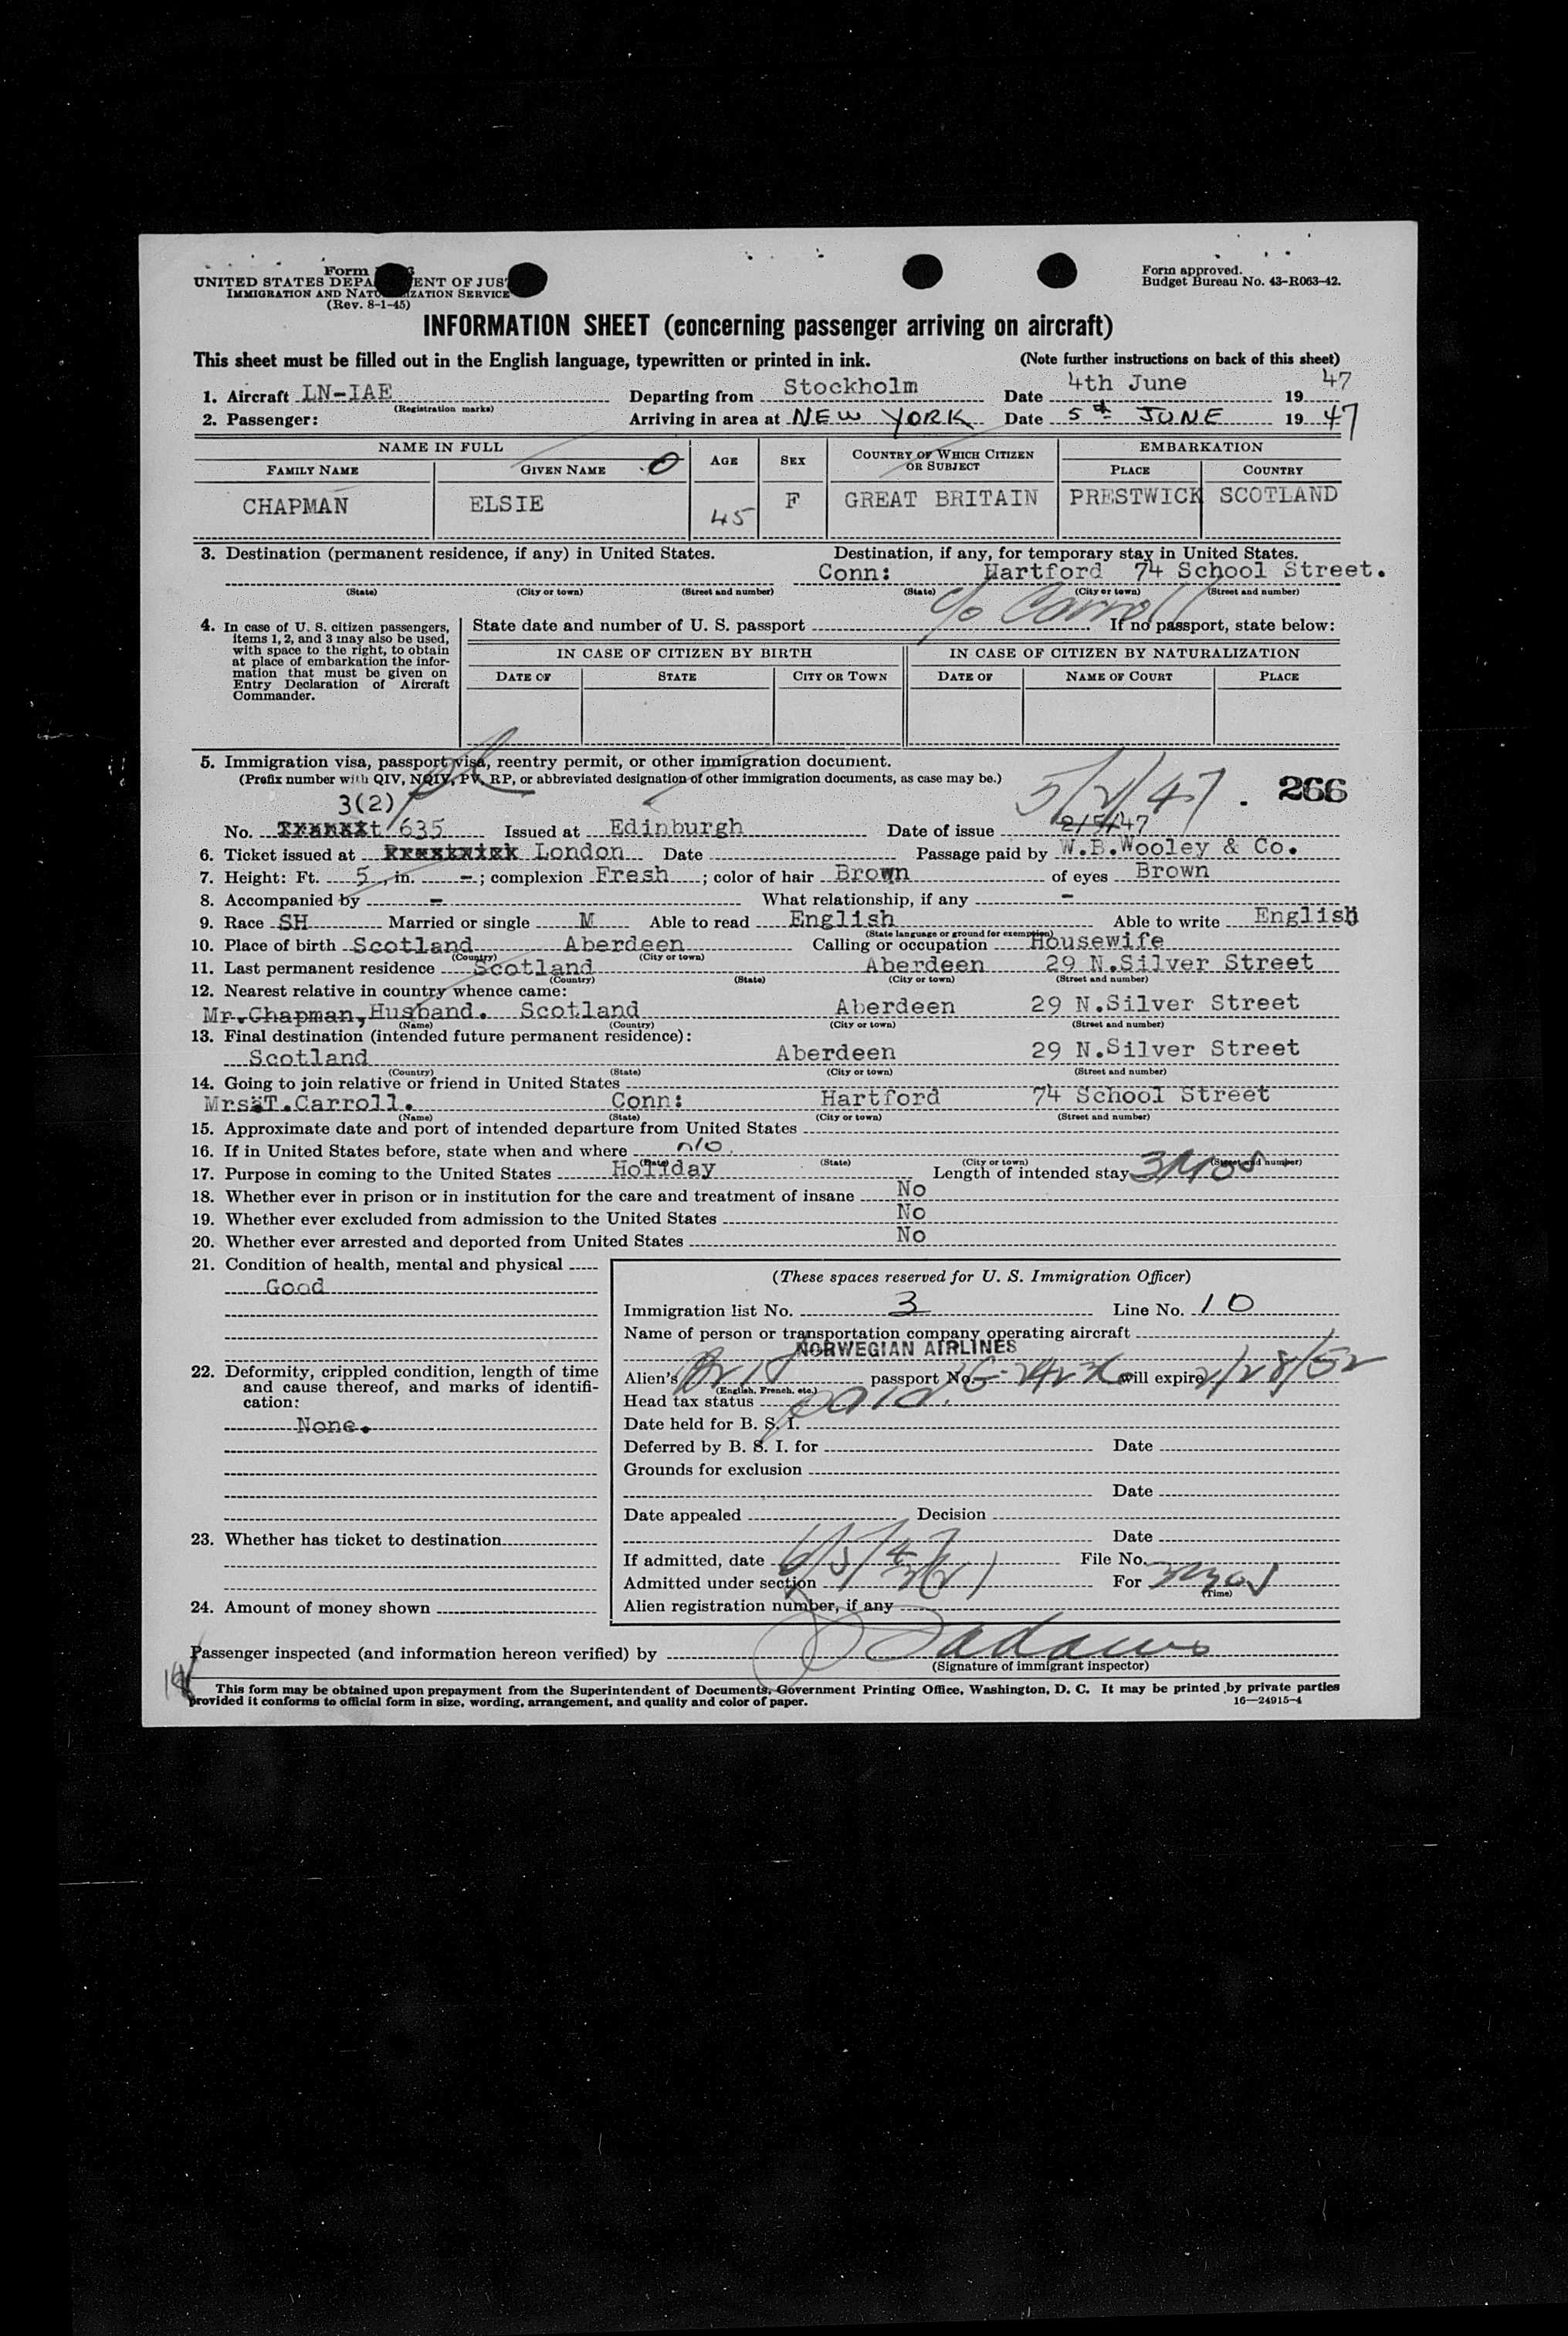 Form
UNITED STATES DEPA ENT OF JUS
IMMIGRATION AND NATU IZATION SERVICE
(Rev. 8-1-45)
Form approved.
Budget Bureau No. 43-R063-42.
INFORMATION SHEET (concerning passenger arriving on aircraft)
This sheet must be filled out in the English language, typewritten or printed in ink. (Note further instructions on back of this sheet)
1. Aircraft LN-IAE Departing from Stockholm Date 4th June 19 47
(Registration marks)
2. Passenger: Arriving in area at NEW YORK Date 5th JUNE 19 47
NAME IN FULL AGE SEX COUNTRY OF WHICH CITIZEN OR SUBJECT EMBARKATION
FAMILY NAME GIVEN NAME PLACE COUNTRY
CHAPMAN ELSIE 45 F GREAT BRITAIN PRESTWICK SCOTLAND
3. Destination (permanent residence, if any) in United States. Destination, if any, for temporary stay in United States.
Conn: Hartford 74 School Street.
(State) (City or town) (Street and number) (State) (City or town) (Street and number)
c/o Carroll
4. In case of U. S. citizen passengers, items 1, 2, and 3 may also be used, with space to the right, to obtain at place of embarkation the information that must be given on Entry Declaration of Aircraft Commander.
State date and number of U. S. passport If no passport, state below:
IN CASE OF CITIZEN BY BIRTH IN CASE OF CITIZEN BY NATURALIZATION
DATE OF STATE CITY OR TOWN DATE OF NAME OF COURT PLACE
5. Immigration visa, passport visa, reentry permit, or other immigration document.
(Prefix number with QIV, NQIV, PV, RP, or abbreviated designation of other immigration documents, as case may be.)
3(2) 5/2/47 266
No. 635 Issued at Edinburgh Date of issue 2/5/47
6. Ticket issued at London Date Passage paid by W.B.Wooley & Co.
7. Height: Ft. 5, in. -; complexion Fresh; color of hair Brown of eyes Brown
8. Accompanied by - What relationship, if any -
9. Race SH Married or single M Able to read English Able to write English
(State language or ground for exemption)
10. Place of birth Scotland Aberdeen Calling or occupation Housewife
(Country) (City or town)
11. Last permanent residence Scotland Aberdeen 29 N.Silver Street
(Country) (State) (City or town) (Street and number)
12. Nearest relative in country whence came:
Mr.Chapman, Husband. Scotland Aberdeen 29 N.Silver Street
(Name) (Country) (City or town) (Street and number)
13. Final destination (intended future permanent residence):
Scotland Aberdeen 29 N.Silver Street
(Country) (State) (City or town) (Street and number)
14. Going to join relative or friend in United States
Mrs.T.Carroll. Conn: Hartford 74 School Street
(Name) (State) (City or town) (Street and number)
15. Approximate date and port of intended departure from United States
16. If in United States before, state when and where no.
(Date) (State) (City or town) (Street and number)
17. Purpose in coming to the United States Holiday Length of intended stay 3 Mos
18. Whether ever in prison or in institution for the care and treatment of insane No
19. Whether ever excluded from admission to the United States No
20. Whether ever arrested and deported from United States No
21. Condition of health, mental and physical
Good
22. Deformity, crippled condition, length of time and cause thereof, and marks of identification:
None.
23. Whether has ticket to destination
24. Amount of money shown
(These spaces reserved for U. S. Immigration Officer)
Immigration list No. 3 Line No. 10
Name of person or transportation company operating aircraft
NORWEGIAN AIRLINES
Alien's Brit passport No. will expire 2/28/52
(English, French, etc.)
Head tax status paid.
Date held for B. S. I.
Deferred by B. S. I. for Date
Grounds for exclusion
Date
Date appealed Decision
Date
If admitted, date 6/5/47 File No.
Admitted under section 3(2) For 3 mos
(Time)
Alien registration number, if any
Passenger inspected (and information hereon verified) by Adams
(Signature of immigrant inspector)
This form may be obtained upon prepayment from the Superintendent of Documents, Government Printing Office, Washington, D. C. It may be printed by private parties
provided it conforms to official form in size, wording, arrangement, and quality and color of paper. 16—24915-4